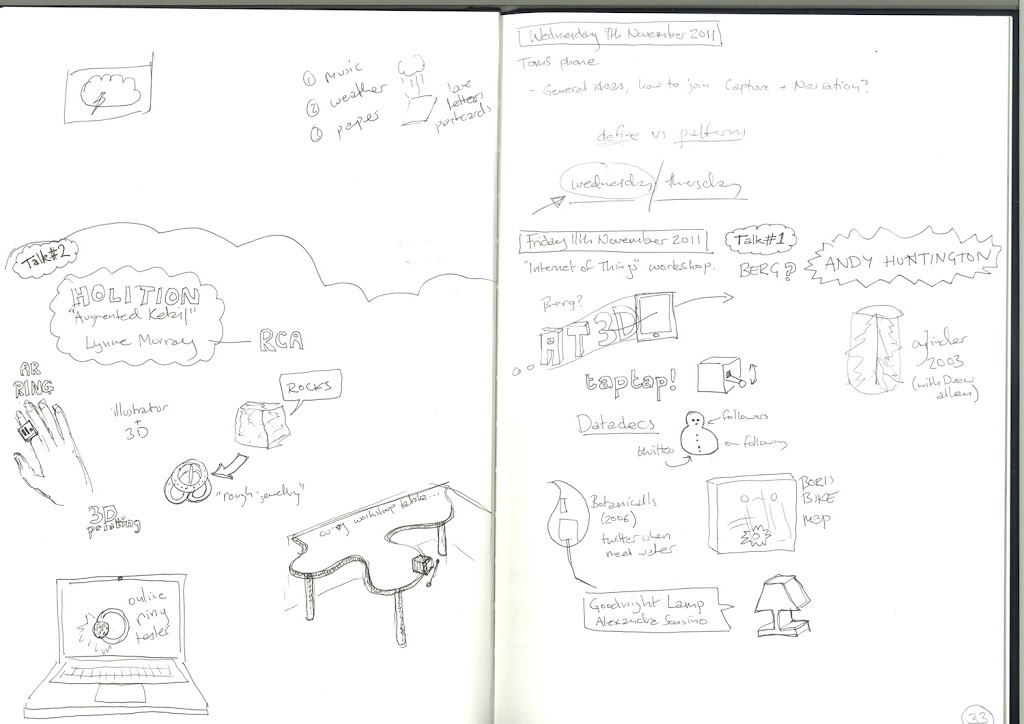 ① music
② weather
③ paper
love
letters
postcards
Talk #2
HOLITION
"Augmented Retail"
Lynne Murray
RCA
AR
RING
illustrator
+
3D
ROCKS
"rough-jewelry"
3D
printing
curvy workshop table...
online
ring
tester
Wednesday 9th November 2011
Tom's phone
- General ideas, how to join Capture + Narration?
define vs patterns
wednesday / thursday
Friday 11th November 2011
"Internet of Things" workshop.
Talk #1
BERG?
ANDY HUNTINGTON
Berg?
AT 3D
cylinder
2003
(with Drew
allen)
taptap!
Datadecs
followers
twitter
following
Botanicalls
(2006)
twitter when
need water
BORIS
BIKE
MAP
Goodnight Lamp
33